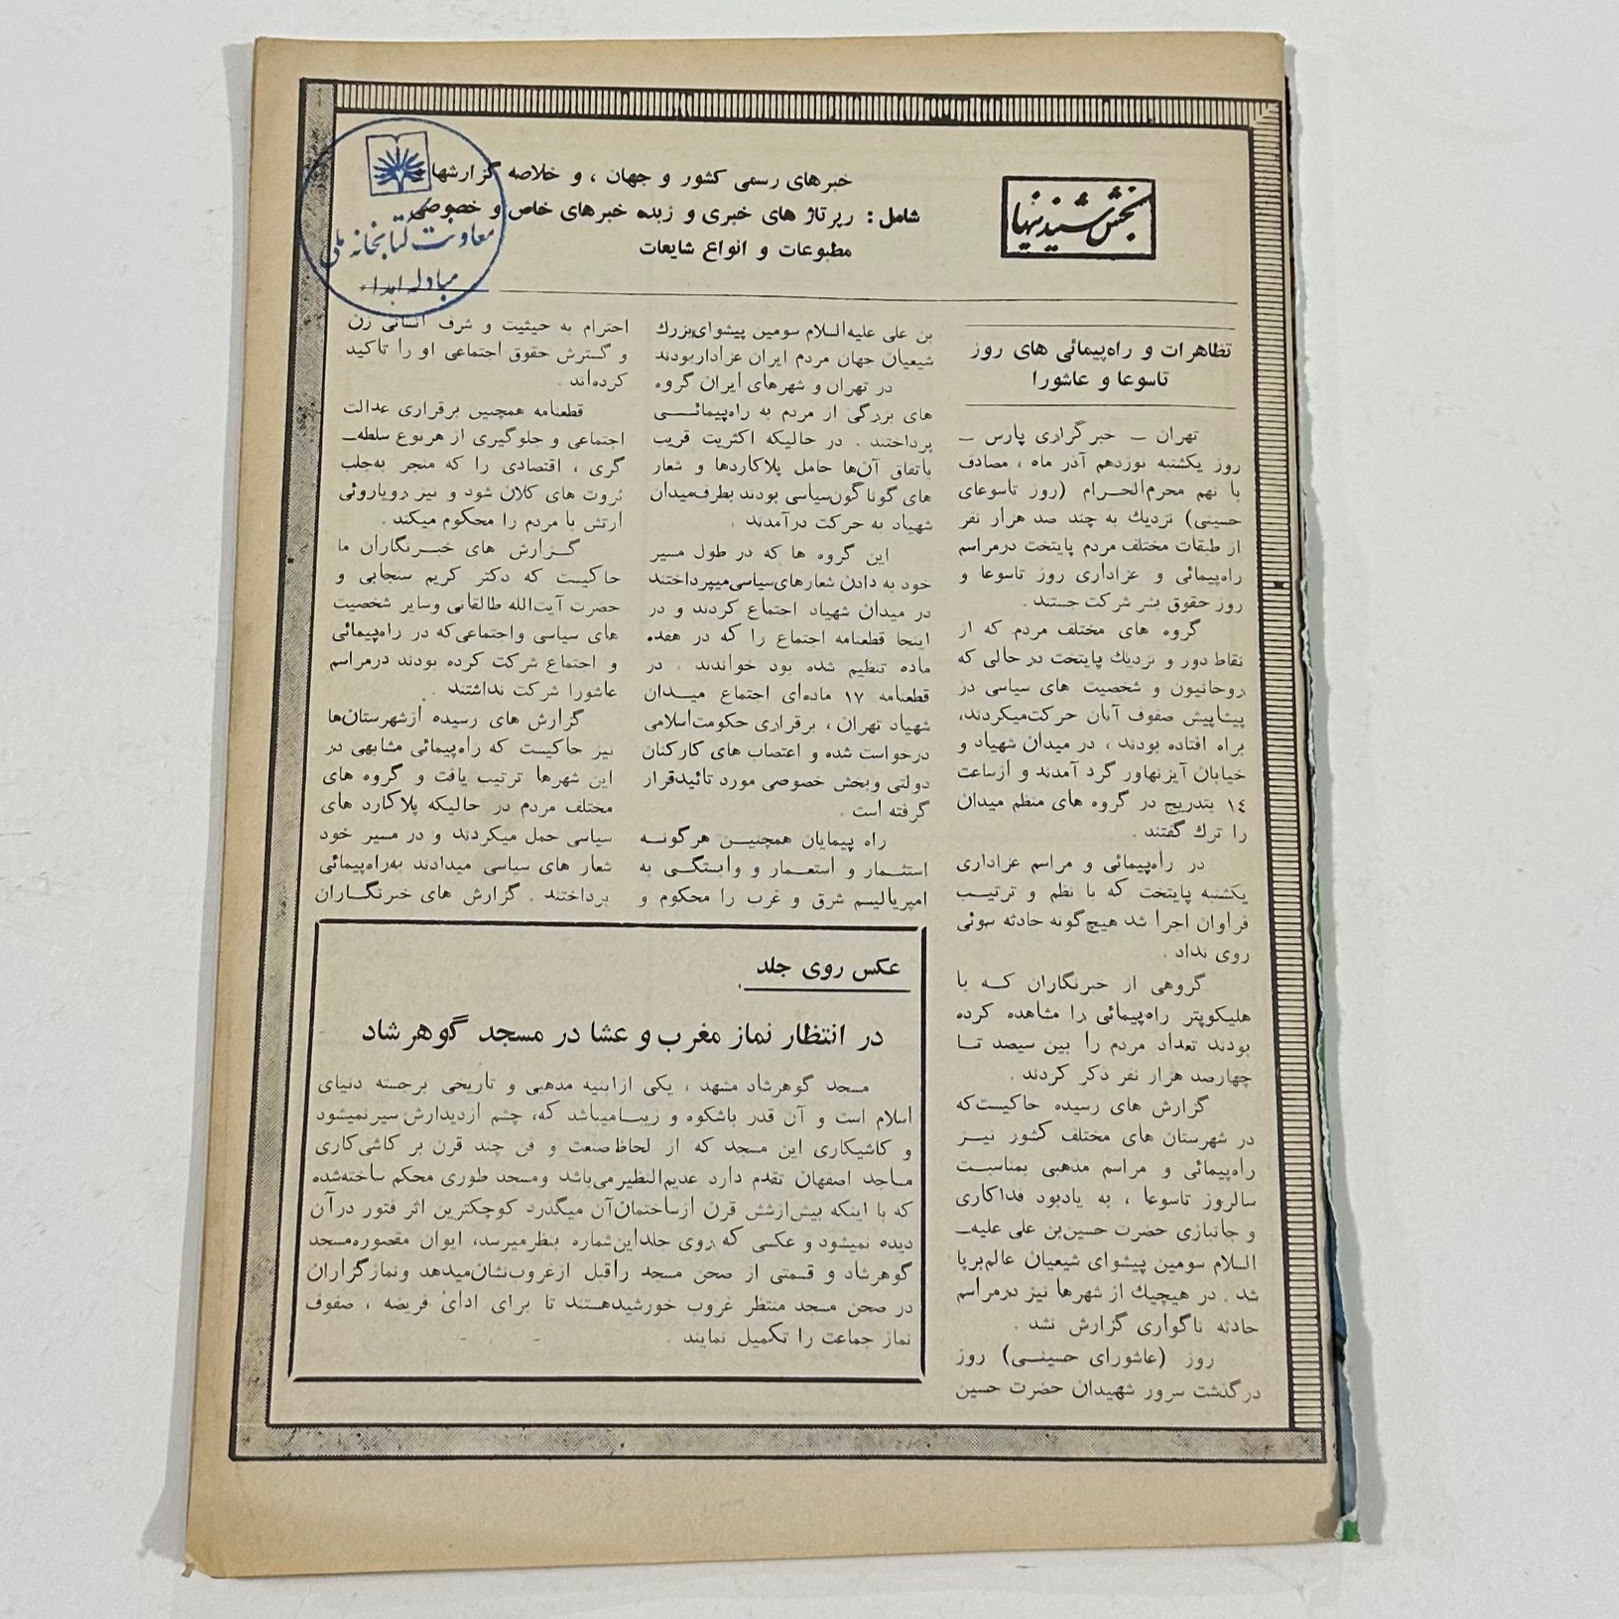 بخش شنیدنیها
خبرهای رسمی کشور و جهان ، و خلاصه گزارشها
شامل : رپرتاژ های خبری و زبده خبرهای خاص و خصوصی
مطبوعات و انواع شایعات
معاونت کتابخانه ملی
مبادله اهداء
تظاهرات و راه‌پیمائی های روز
تاسوعا و عاشورا
تهران – خبرگزاری پارس –
روز یکشنبه نوزدهم آذر ماه ، مصادف
با نهم محرم‌الحرام (روز تاسوعای
حسینی) نزدیك به چند صد هزار نفر
از طبقات مختلف مردم پایتخت درمراسم
راه‌پیمائی و عزاداری روز تاسوعا و
روز حقوق بشر شرکت جستند .
گروه های مختلف مردم که از
نقاط دور و نزدیك پایتخت در حالی که
روحانیون و شخصیت های سیاسی در
پیشاپیش صفوف آنان حرکت‌میکردند،
براه افتاده بودند ، در میدان شهیاد و
خیابان آیزنهاور گرد آمدند و ازساعت
۱٤ بتدریج در گروه های منظم میدان
را ترك گفتند .
در راه‌پیمائی و مراسم عزاداری
یکشنبه پایتخت که با نظم و ترتیب
فراوان اجرا شد هیچ‌گونه حادثه سوئی
روی نداد .
گروهی از خبرنگاران که با
هلیکوپتر راه‌پیمائی را مشاهده کرده
بودند تعداد مردم را بین سیصد تا
چهارصد هزار نفر ذکر کردند .
گزارش های رسیده حاکیست‌که
در شهرستان های مختلف کشور نیز
راه‌پیمائی و مراسم مذهبی بمناسبت
سالروز تاسوعا ، به یادبود فداکاری
و جانبازی حضرت حسین‌بن علی علیه‌-
السلام سومین پیشوای شیعیان عالم‌برپا
شد . در هیچیك از شهرها نیز درمراسم
حادثه ناگواری گزارش نشد .
روز (عاشورای حسینی) روز
درگذشت سرور شهیدان حضرت حسین
بن علی علیه‌السلام سومین پیشوای‌بزرك
شیعیان جهان مردم ایران عزاداربودند
در تهران و شهرهای ایران گروه
های بزرگی از مردم به راه‌پیمائی
پرداختند . در حالیکه اکثریت قریب
باتفاق آن‌ها حامل پلاکاردها و شعار
های گوناگون‌سیاسی بودند بطرف‌میدان
شهیاد به حرکت درآمدند .
این گروه ها که در طول مسیر
خود به دادن شعارهای‌سیاسی‌میپرداختند
در میدان شهیاد اجتماع کردند و در
اینجا قطعنامه اجتماع را که در هفده
ماده تنظیم شده بود خواندند . در
قطعنامه ۱۷ ماده‌ای اجتماع میدان
شهیاد تهران ، برقراری حکومت‌اسلامی
درخواست شده و اعتصاب های کارکنان
دولتی وبخش خصوصی مورد تائیدقرار
گرفته است .
راه پیمایان همچنین هرگونه
استثمار و استعمار و وابستگی به
امپریالیسم شرق و غرب را محکوم و
احترام به حیثیت و شرف انسانی زن
و گسترش حقوق اجتماعی او را تاکید
کرده‌اند .
قطعنامه همچنین برقراری عدالت
اجتماعی و جلوگیری از هرنوع سلطه‌-
گری ، اقتصادی را که منجر به‌جلب
ثروت های کلان شود و نیز رویاروئی
ارتش با مردم را محکوم میکند .
گزارش های خبرنگاران ما
حاکیست که دکتر کریم سنجابی و
حضرت آیت‌الله طالقانی وسایر شخصیت
های سیاسی واجتماعی‌که در راه‌پیمائی
و اجتماع شرکت کرده بودند درمراسم
عاشورا شرکت نداشتند .
گزارش های رسیده ازشهرستان‌ها
نیز حاکیست که راه‌پیمائی مشابهی در
این شهرها ترتیب یافت و گروه های
مختلف مردم در حالیکه پلاکارد های
سیاسی حمل میکردند و در مسیر خود
شعار های سیاسی میدادند به‌راه‌پیمائی
پرداختند . گزارش های خبرنگاران
عکس روی جلد
در انتظار نماز مغرب و عشا در مسجد گوهر شاد
مسجد گوهرشاد مشهد ، یکی ازابنیه مذهبی و تاریخی برجسته دنیای
اسلام است و آن قدر باشکوه و زیبا‌میباشد که، چشم ازدیدارش سیرنمیشود
و کاشیکاری این مسجد که از لحاظ صنعت و فن چند قرن بر کاشی‌کاری
مساجد اصفهان تقدم دارد عدیم‌النظیرمی‌باشد ومسجد طوری محکم ساخته‌شده
که با اینکه بیش‌ازشش قرن ازساختمان‌آن میگذرد کوچکترین اثر فتور درآن
دیده نمیشود و عکسی که روی جلداین‌شماره بنظرمیرسد، ایوان مقصوره‌مسجد
گوهرشاد و قسمتی از صحن مسجد راقبل ازغروب‌نشان‌میدهد ونمازگزاران
در صحن مسجد منتظر غروب خورشیدهستند تا برای ادای فریضه ، صفوف
نماز جماعت را تکمیل نمایند .